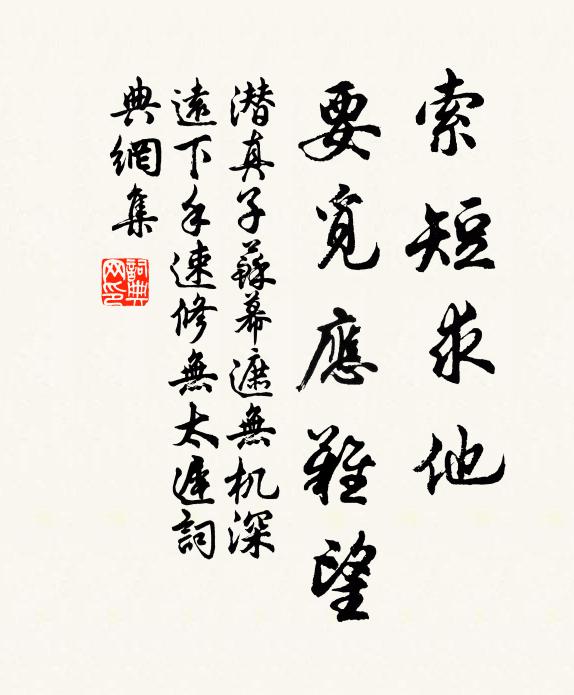 索短求他
要覓應難望
潛真子蘇幕遮無机深
遠下手速修無太遲詞
典網集
詞典網印